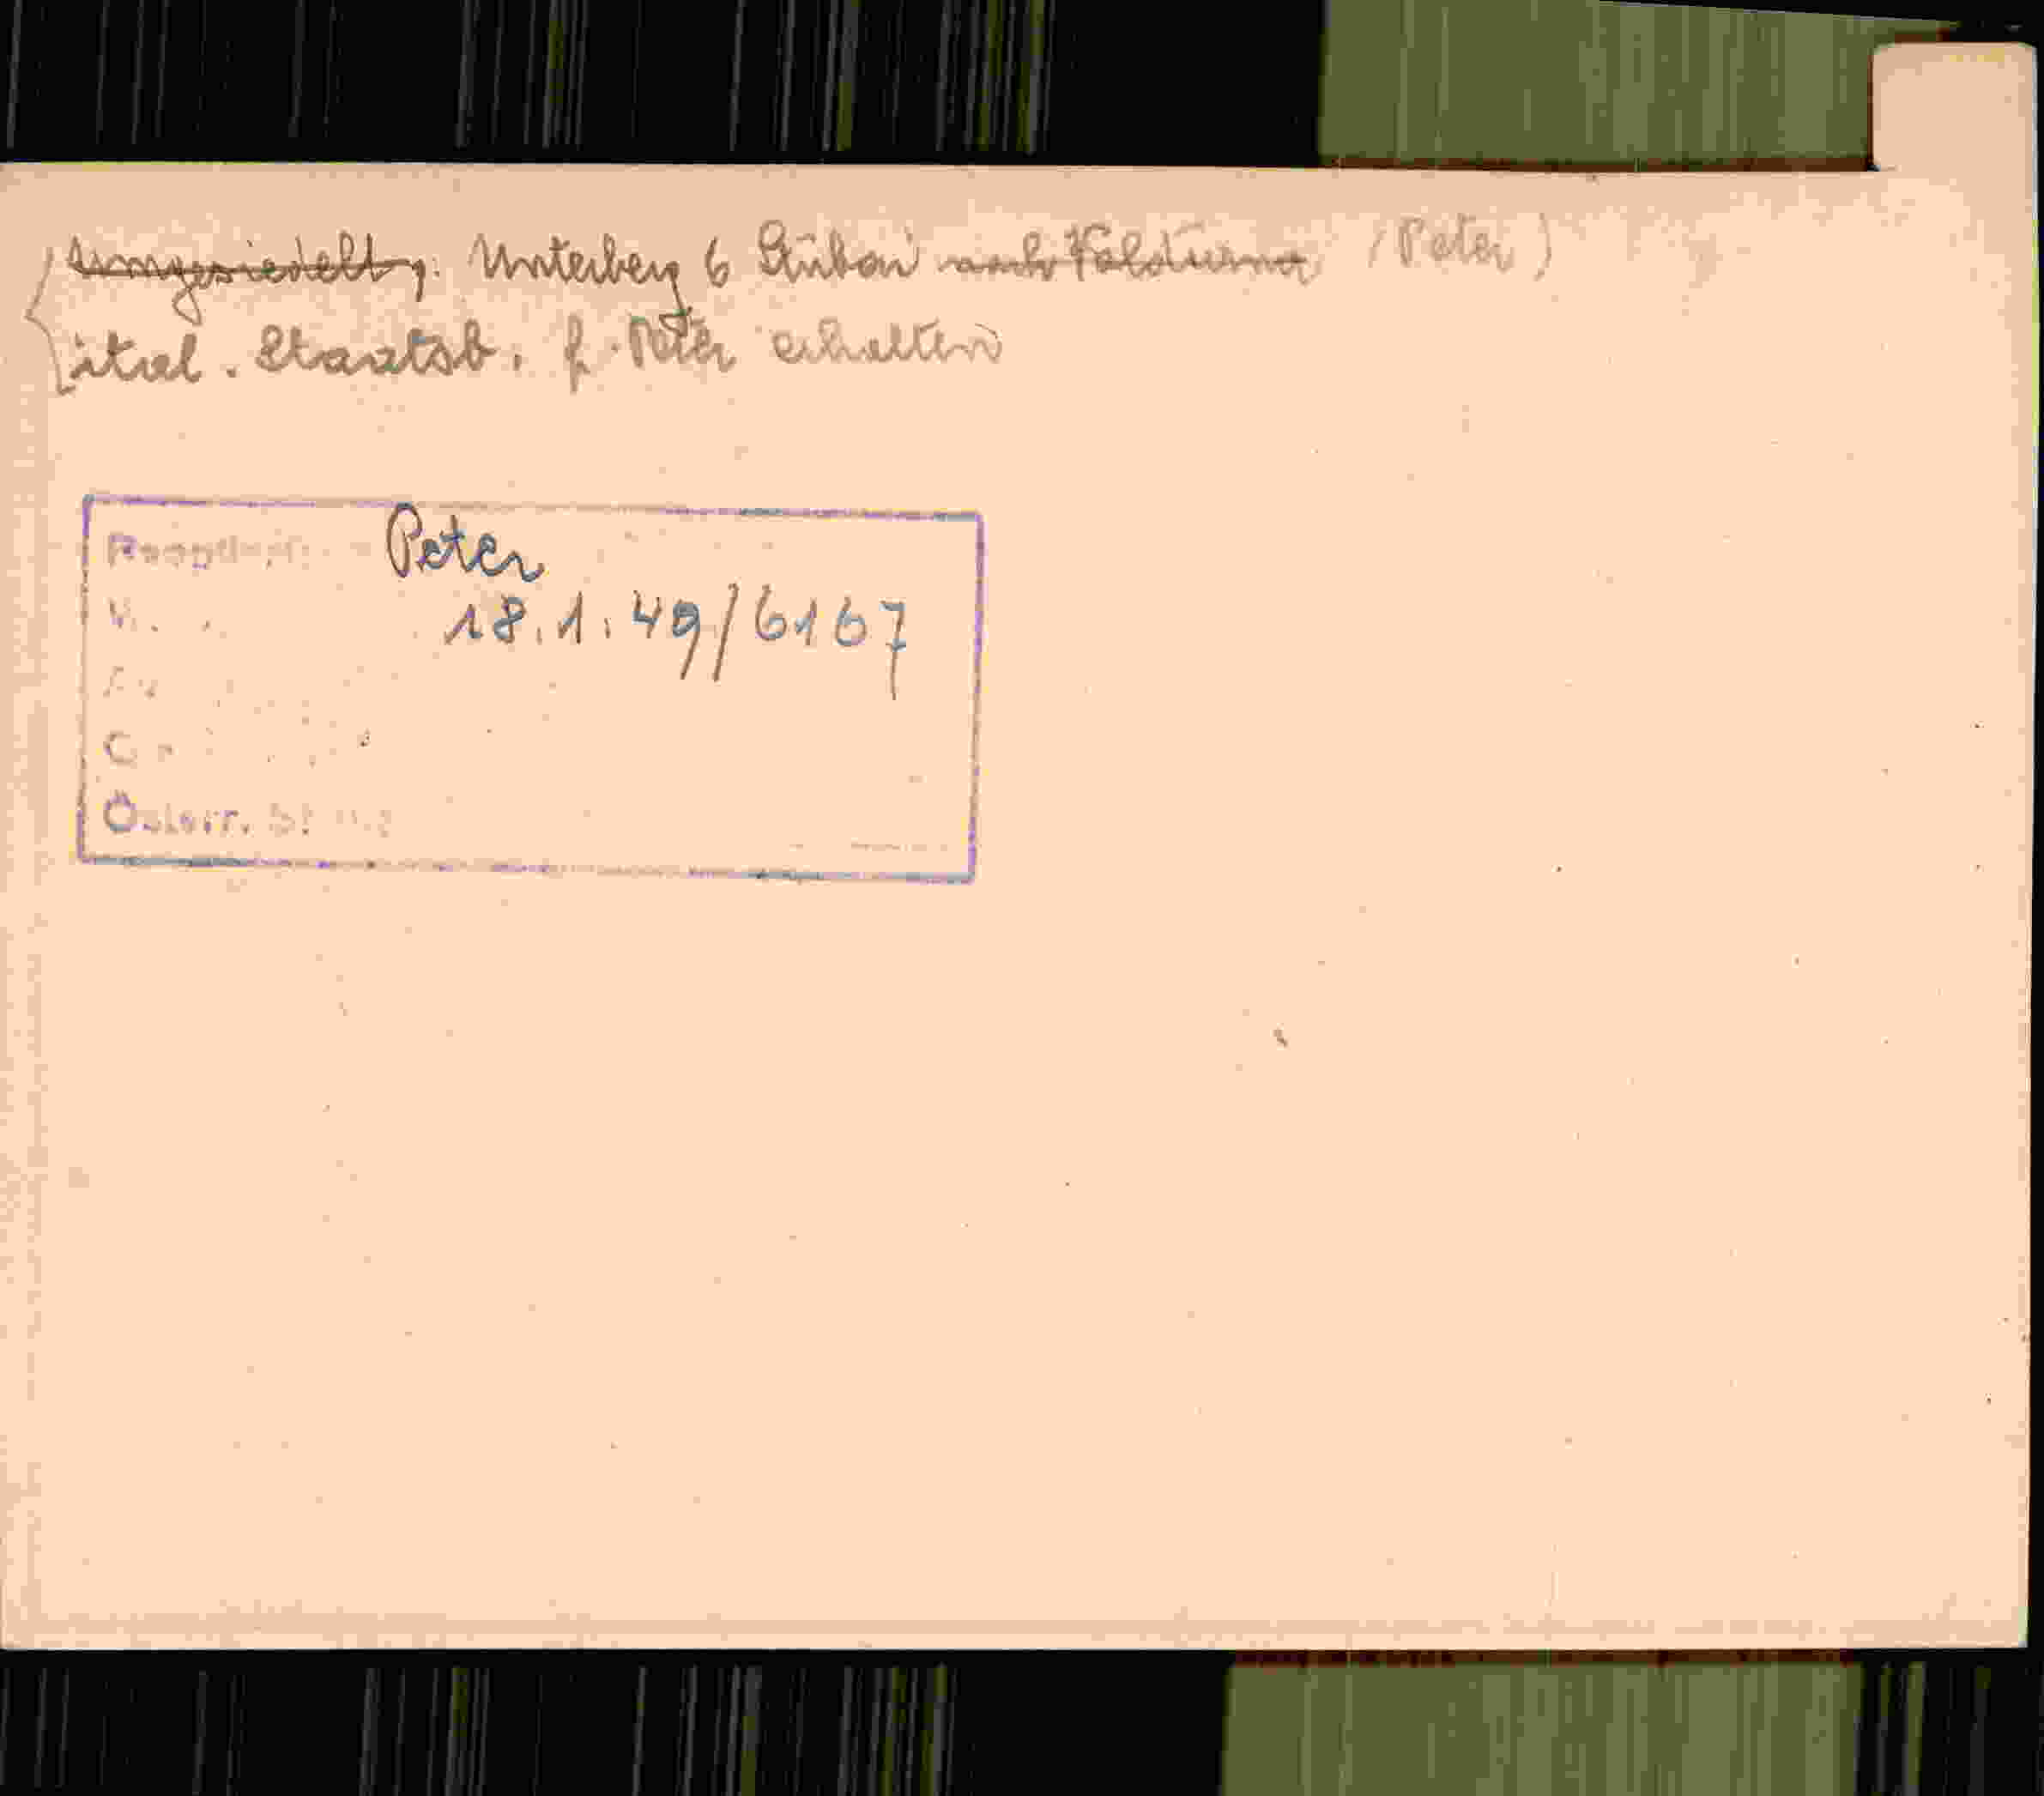 umgesiedelt: Unterberg 6 Stubai nach Feldturns (Peter)
ital. Staatsb. f. Peter erhalten
Peter
18.1.49/6167
Österr.